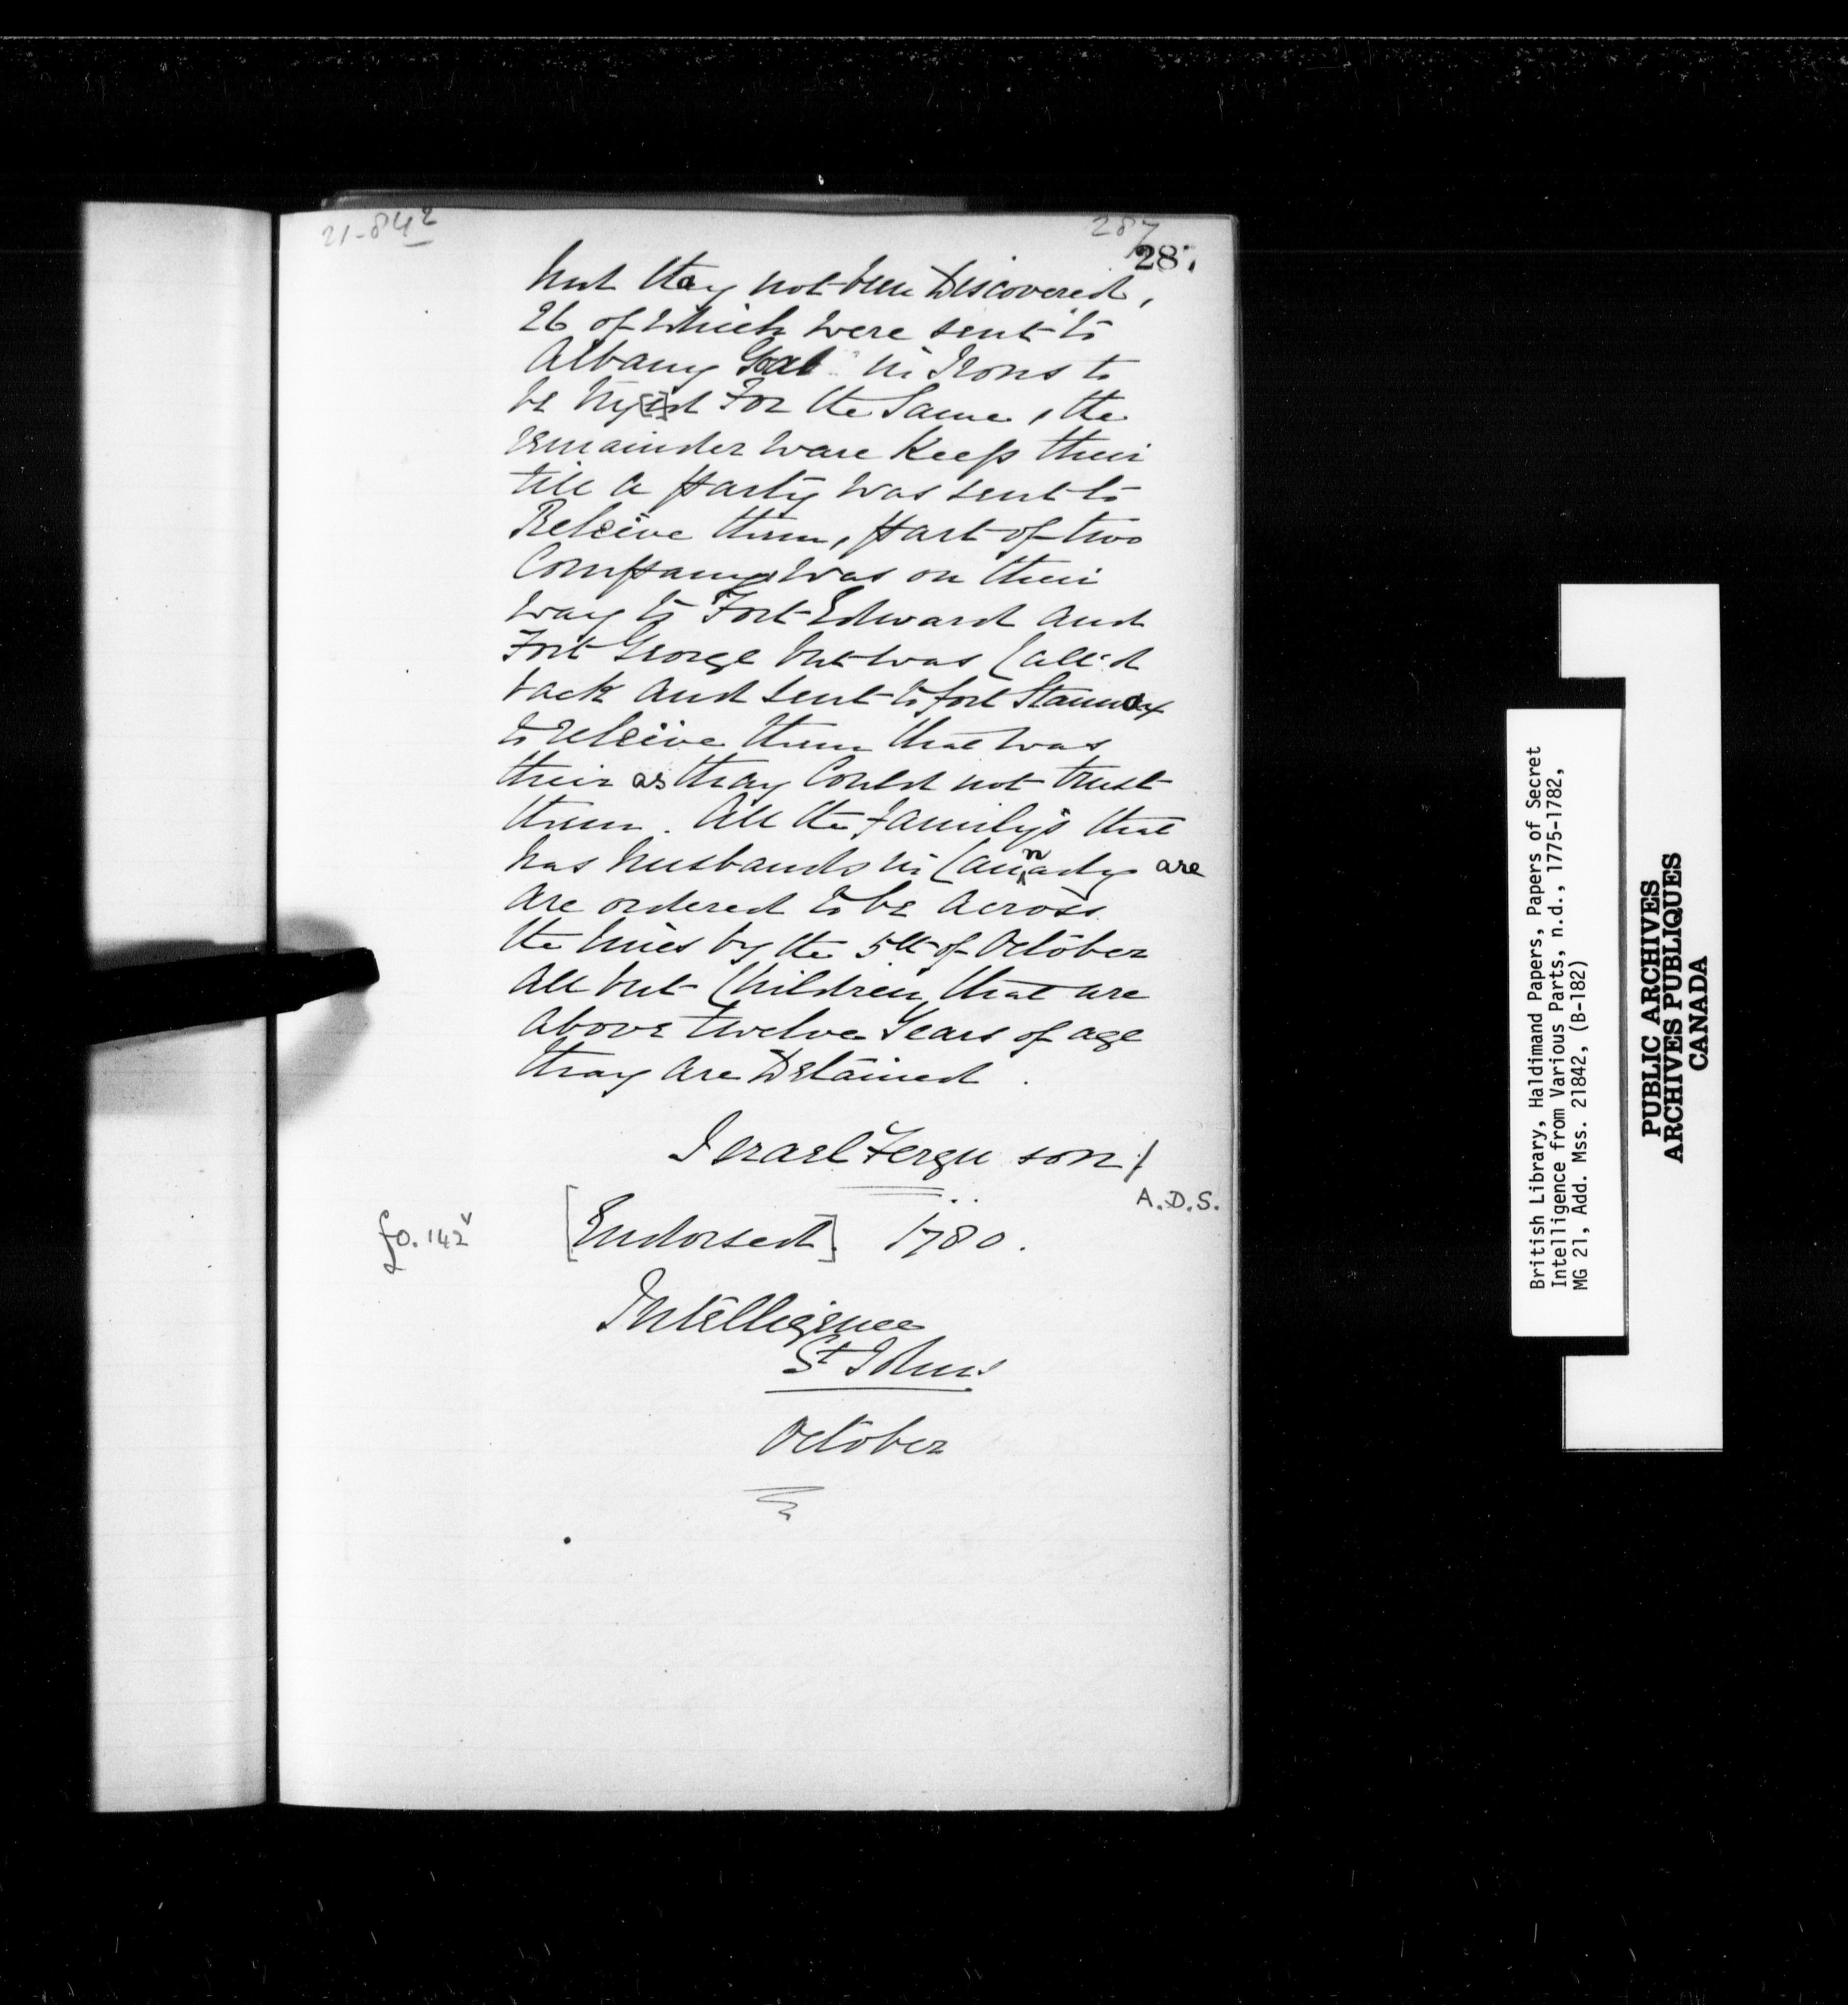 21-842
287
287
but thay not been Discovered,
26 of which were sent to
Albany Goal in Irons to
be try[e]d For the Same, the
remainder ware Keep their
till a Party was sent to
Releive them, Part of two
Companys was on their
way to Fort Edward and
Fort George but was Call'd
back and sent to fort Stanwax
to releive them that was
their as thay Could not trust
them. All the Family's that
has husbands in Cannady are
are ordered to be Across
the lines by the 5th of October
All but Children that are
above twelve Years of age
thay Are Detained.
Israel Fergu son/
A.D.S.
fo. 142v [Endorsed]. 1780.
Intelligence
St Johns
October
British Library, Haldimand Papers, Papers of Secret
Intelligence from Various Parts, n.d., 1775-1782,
MG 21, Add. Mss. 21842, (B-182)
PUBLIC ARCHIVES
ARCHIVES PUBLIQUES
CANADA